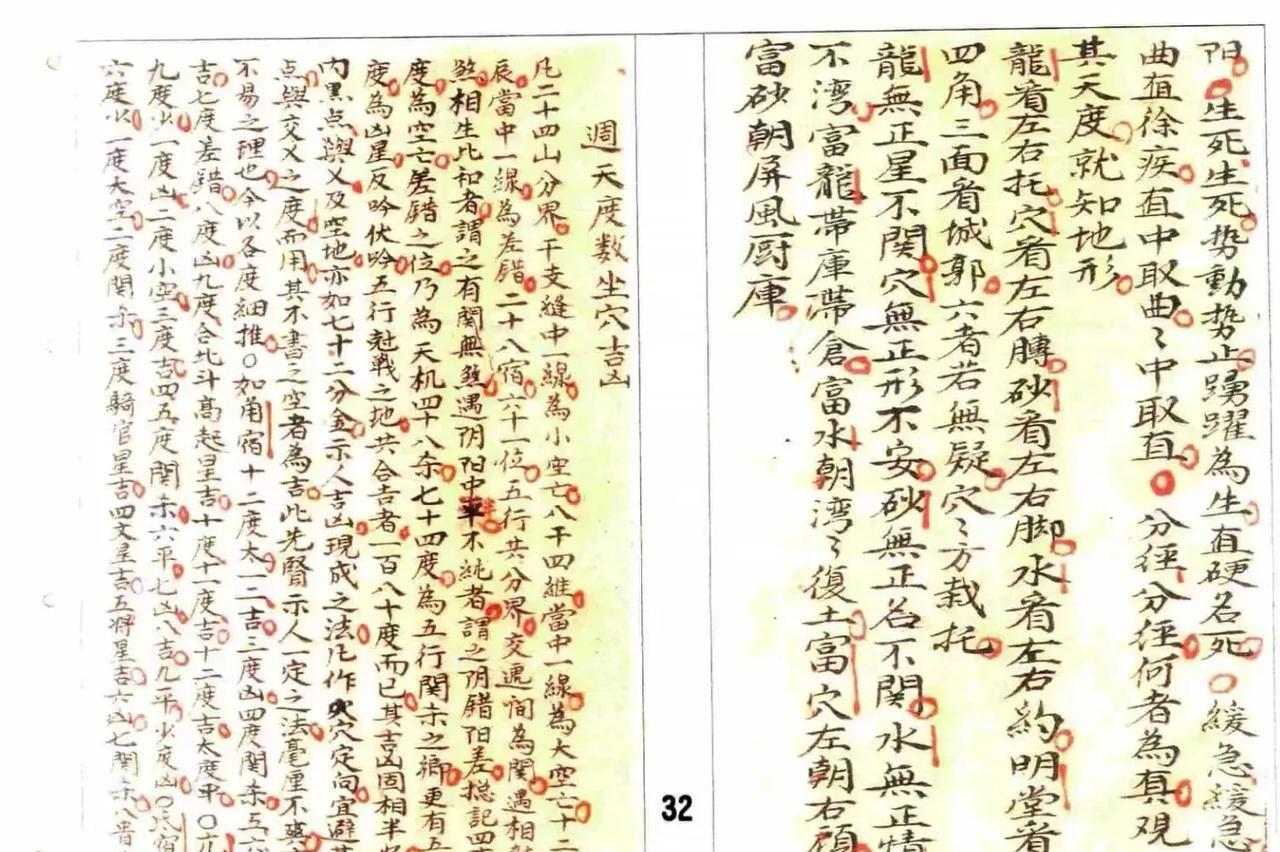 阳生死生死势動势止踴躍為生直硬名死緩急緩急
曲直徐疾直中取曲々中取直分徑分徑何者為真观
其天度就知地形
龍看左右托穴看左右膊砂看左右脚水看左右約明堂看
四角三面看城郭六者若無疑穴々方栽托
龍無正星不関穴無正形不安砂無正名不関水無正情
不湾富龍帯庫帯倉富水朝湾々復土富穴左朝右顧
富砂朝屏風厨庫
32
週天度數坐穴吉凶
凡二十四山分界干支縫中一線為小空亡八干四維當中一線為大空亡十二
辰當中一線為差錯二十八宿六十一位五行其分界交遞间為関遇相
煞相生比和者謂之有関無煞遇阴阳中不純者謂之阴錯阳差摠記四
度為空亡差錯之位乃為天机四十八杀七十四度為五行関杀之鄉更有五
度為凶星反吟伏吟五行尅戰之地共合吉者一百八十度而已其吉凶固相半
内黒点與乂及空地亦如七十二分金示人吉凶現成之法凡作穴定向宜避
点與交乂之度而用其不書之空者為吉此先賢示人一定之法毫厘不爽
不易之理也今以各度細推〇如角宿十二度太一二吉三度凶四度関杀五六
吉七度差錯八度凶九度合北斗高起星吉十度十一度吉十二度吉太度甲〇亢
九度少一度凶二度小空三度吉四五度関杀六平七凶八吉九平少度凶〇氐宿
六度少一度大空二度関杀三度騎官星吉四文星吉五將星吉六凶七関杀八貴